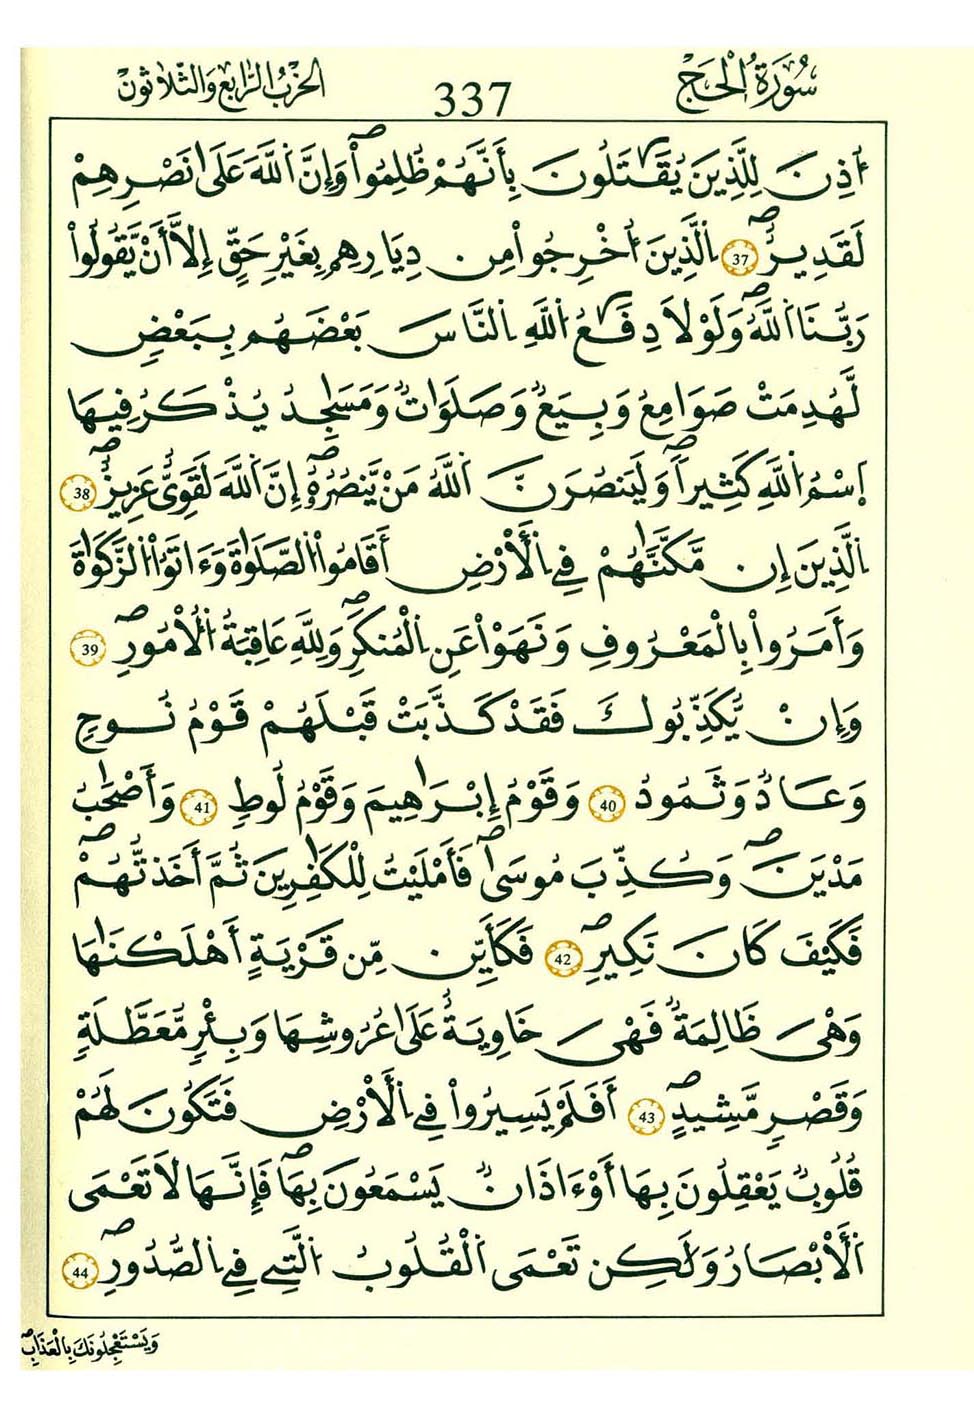 سُورَةُ الْحَجِّ
337
الحِزْبُ الرَّابِعُ وَالثَّلاَثُونَ
أُذِنَ لِلَّذِينَ يُقَٰتَلُونَ بِأَنَّهُمْ ظُلِمُواْۖ وَإِنَّ اَ۬للَّهَ عَلَىٰ نَصْرِهِمْ
لَقَدِيرٌۖ 37 اِ۬لَّذِينَ أُخْرِجُواْ مِن دِيَٰرِهِم بِغَيْرِ حَقٍّ إِلَّا أَنْ يَّقُولُواْ
رَبُّنَا اَ۬للَّهُۖ وَلَوْلَا دِفَٰعُ اُ۬للَّهِ اِ۬لنَّاسَ بَعْضَهُم بِبَعْضٖ
لَّهُدِمَتْ صَوَٰمِعُ وَبِيَعٞ وَصَلَوَٰتٞ وَمَسَٰجِدُ يُذْكَرُ فِيهَا
اَ۪سْمُ اُ۬للَّهِ كَثِيراٗۖ وَلَيَنصُرَنَّ اَ۬للَّهُ مَنْ يَّنصُرُهُۥۖ إِنَّ اَ۬للَّهَ لَقَوِيٌّ عَزِيزٌۖ 38
اِ۬لَّذِينَ إِن مَّكَّنَّٰهُمْ فِے اِ۬لْأَرْضِ أَقَامُواْ اُ۬لصَّلَوٰةَ وَءَاتَوُاْ اُ۬لزَّكَوٰةَ
وَأَمَرُواْ بِالْمَعْرُوفِ وَنَهَوْاْ عَنِ اِ۬لْمُنكَرِۖ وَلِلهِ عَٰقِبَةُ اُ۬لْأُمُورِۖ 39
وَإِنْ يُّكَذِّبُوكَ فَقَدْ كَذَّبَتْ قَبْلَهُمْ قَوْمُ نُوحٖ
وَعَادٞ وَثَمُودُ 40 وَقَوْمُ إِبْرَٰهِيمَ وَقَوْمُ لُوطٖ 41 وَأَصْحَٰبُ
مَدْيَنَۖ وَكُذِّبَ مُوسَىٰۖ فَأَمْلَيْتُ لِلْكَٰفِرِينَ ثُمَّ أَخَذتُّهُمْۖ
فَكَيْفَ كَانَ نَكِيرِۖ 42 فَكَأَيِّن مِّن قَرْيَةٍ أَهْلَكْنَٰهَا
وَهْيَ ظَالِمَةٞ فَهْيَ خَاوِيَةٌ عَلَىٰ عُرُوشِهَا وَبِئْرٖ مُّعَطَّلَةٖ
وَقَصْرٖ مَّشِيدٍۖ 43 أَفَلَمْ يَسِيرُواْ فِے اِ۬لْأَرْضِ فَتَكُونَ لَهُمْ
قُلُوبٞ يَعْقِلُونَ بِهَا أَوْ ءَاذَانٞ يَسْمَعُونَ بِهَاۖ فَإِنَّهَا لَا تَعْمَى
اَ۬لْأَبْصَٰرُ وَلَٰكِن تَعْمَى اَ۬لْقُلُوبُ اُ۬لتِے فِے اِ۬لصُّدُورِۖ 44
وَيَسْتَعْجِلُونَكَ بِالْعَذَابِۖ